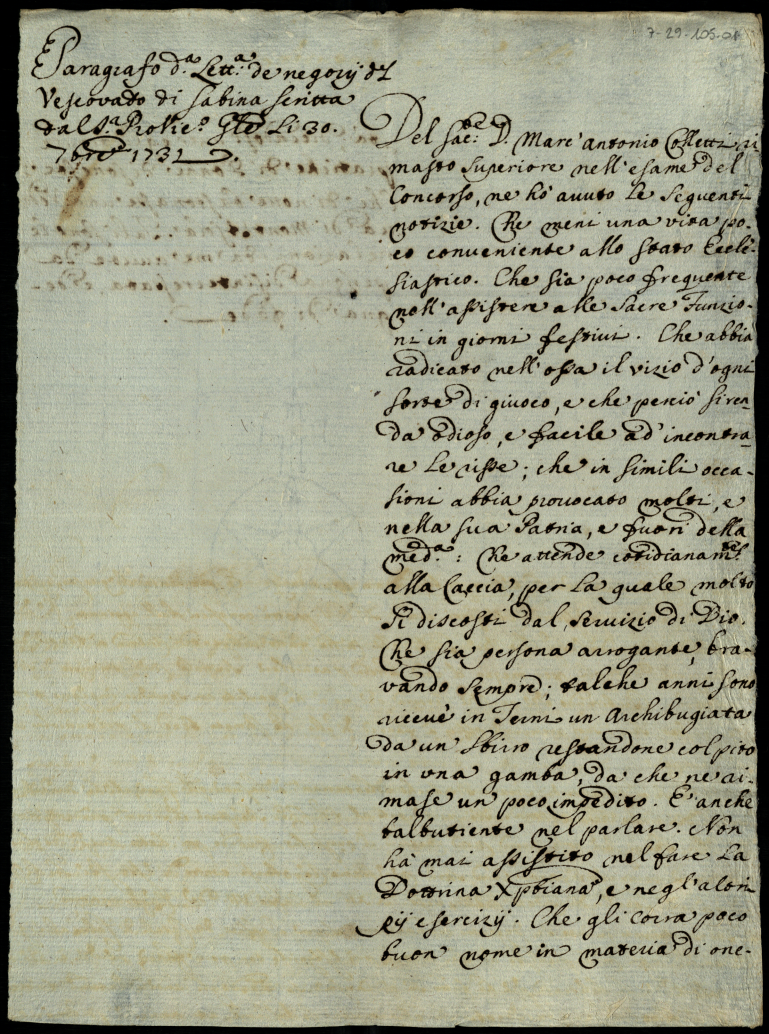 7-29-105-01
Paragrafo d.ª Lett.ª de negozij del
Vescovado di Sabina scritta
dal S.ª Provic.º Gle Li 30.
7bre 1731
Del Sac:te D. Marc'antonio Colletti ri
masto Superiore nell'esame del
Concorso, ne hò auuto Le Seguenti
notizie. Che meni una vita po-
co conueniente allo stato Eccle-
siastico. Che sia poco frequente
nell'assistere alle Sacre Funzio-
ni in giorni festiui. Che abbia
radicato nell'ossa il vizio d'ogni
sorte di giuoco, e che perciò si ren-
da odioso, e facile ad incontra-
re Le risse; che in simili occa-
sioni abbia prouocato molti, e
nella sua Patria, e fuori della
med.ª: Che attende cotidianam.te
alla Caccia, per La quale molto
si discosti dal Seruizio di Dio.
Che sia persona arrogante, bra-
vando sempre; talche anni sono
riceuè in Terni un Archibugiata
da un Sbirro restandone colpito
in una gamba, da che ne ri-
mase un poco impedito. E' anche
balbutiente nel parlare. Non
hà mai assistito nel fare La
Dottrina Xpbiana, e negl'altri
pij esercizij. Che gli corra poco
buon nome in materia di one-